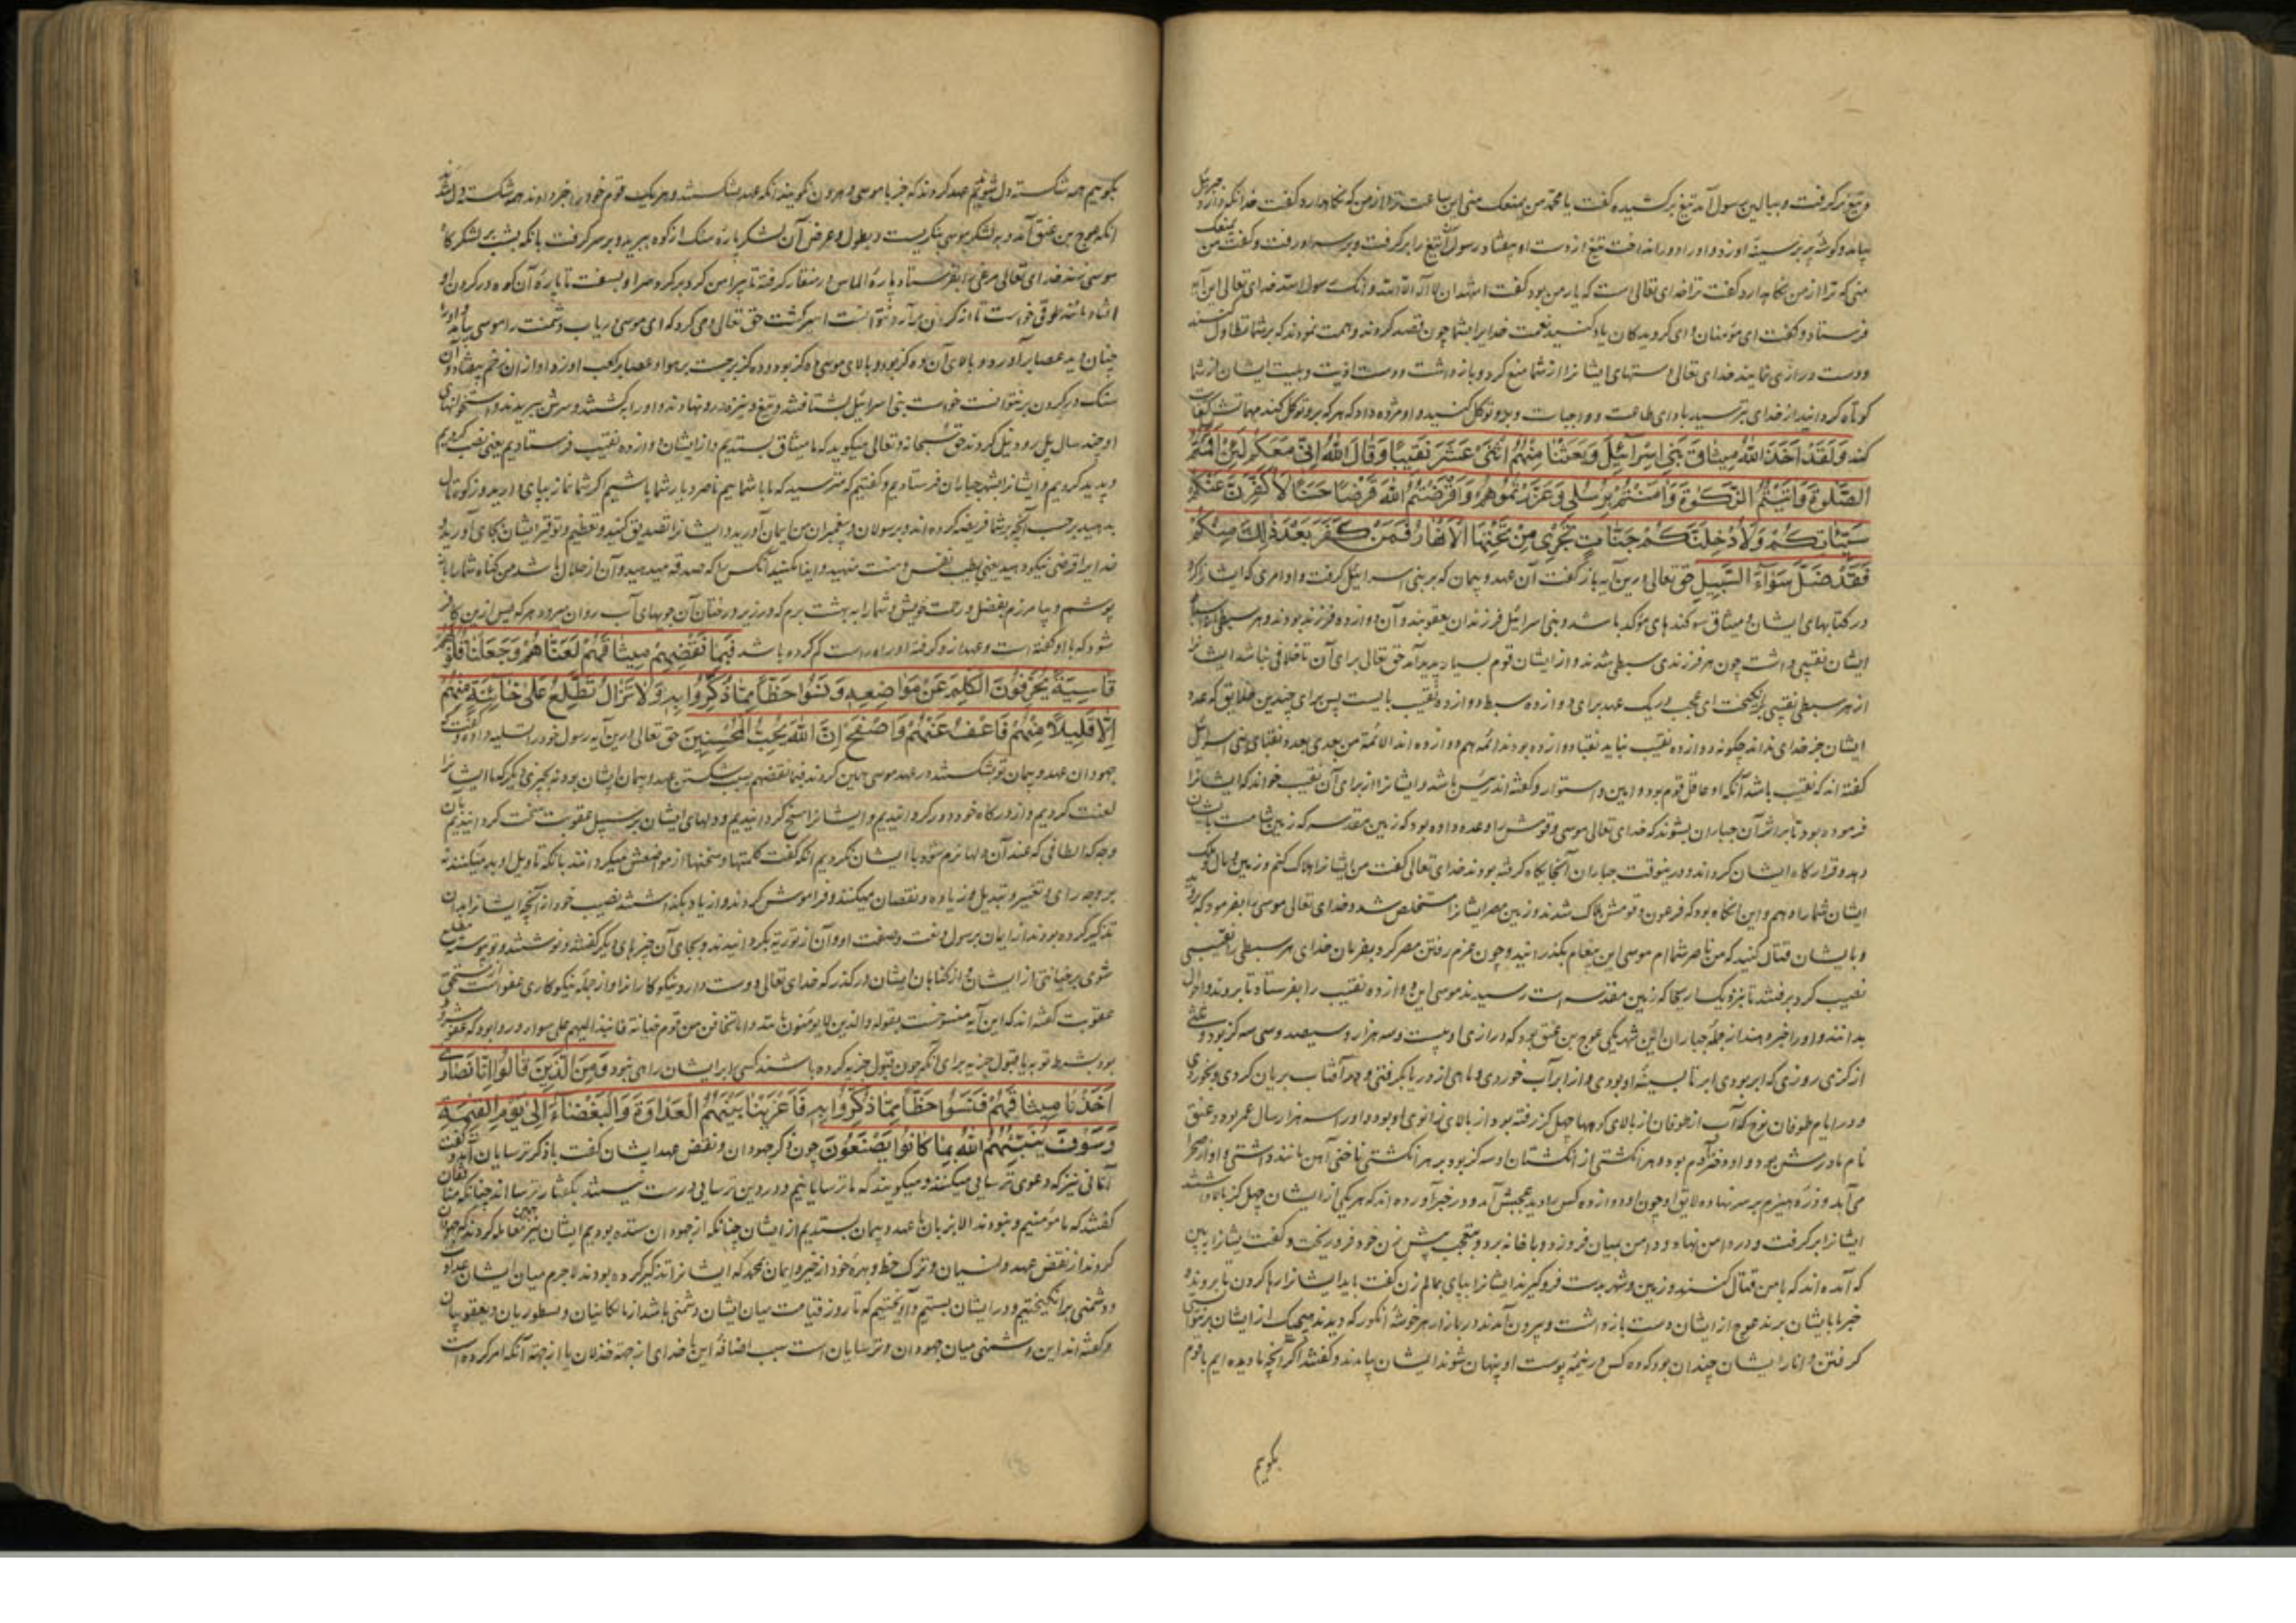 و تیغ برگرفت و ببالین رسول آمد تیغ برکشیده گفت یا محمد من یمنعک منی این ساعت ترا از من که نگاهدارد گفت خدا آنگه جبرئیل
بیامد و بر سینه او زد و او را دور انداخت تیغ از دست او بیفتاد رسول تیغ را برگرفت و بر سر او رفت و گفت من یمنعک
منی که ترا از من نگاهدارد گفت ترا خدای تعالی است که یار من بود گفت اشهد ان لا اله الا الله و انک رسول الله خدای تعالی این آیه
فرستاد و گفت ای مؤمنان و ای گرویدکان یاد کنید نعمت خدا بر شما چون قصد کردند و همت نمودند که بر شما تطاول کنند
و دست درازی نمایند خدای تعالی دستهای ایشانرا از شما منع کرد و بازداشت و دست اذیت و بلیت ایشان از شما
کوتاه گردانید از خدای بترسید بادای طاعت و واجبات و بدو توکل کنید و او مژده داد که هر که برو توکل کند مهماتش کفایت
کند وَلَقَدْ اَخَذَ اللهُ مِيثَاقَ بَنِي اِسْرَآئِيلَ وَبَعَثْنَا مِنْهُمُ اثْنَىْ عَشَرَ نَقِيبًا وَقَالَ اللهُ اِنِّي مَعَكُمْ لَئِنْ اَقَمْتُمُ
الصَّلٰوةَ وَاٰتَيْتُمُ الزَّكٰوةَ وَاٰمَنْتُمْ بِرُسُلِي وَعَزَّرْتُمُوهُمْ وَاَقْرَضْتُمُ اللهَ قَرْضًا حَسَنًا لَاُكَفِّرَنَّ عَنْكُمْ
سَيِّئَاتِكُمْ وَلَاُدْخِلَنَّكُمْ جَنَّاتٍ تَجْرِي مِنْ تَحْتِهَا الْاَنْهَارُ فَمَنْ كَفَرَ بَعْدَ ذٰلِكَ مِنْكُمْ
فَقَدْ ضَلَّ سَوَآءَ السَّبِيلِ حق تعالی درین آیه بازگفت آن عهد و پیمان که بر بنی اسرائیل گرفت و اوامری که ایشانرا کرد
در کتابهای ایشان و میثاق سوگندهای مؤکد باشد و بنی اسرائیل فرزندان یعقوبند و آن دوازده فرزند بودند و هر سبطی
ایشان نقیبی داشت چون هر فرزندی سبطی شدند و از ایشان قوم بسیار پدید آمد حق تعالی برای آن تا خلافی نباشد ایشانرا
از هر سبطی نقیبی برانگیخت ای عجب در یک عهد برای دوازده سبط دوازده نقیب بایست پس برای چندین خلایق که عدد
ایشان جز خدای نداند چگونه دوازده نقیب نباید نقبا دوازده بودند ائمه هم دوازده اند الائمة من بعدی بعدد نقبای بنی اسرائیل
گفته اند که نقیب باشد آنکه او عاقل قوم بود و امین و استوار و گفته اند رئیس باشد و ایشانرا از برای آن نقیب خواند که ایشانرا
فرموده بود تا بر اثر آن جباران بشوند که خدای تعالی موسی و قومش را وعده داده بود که زمین مقدسه که زمین شامست بایشان
دهد و قرارگاه ایشان گرداند و درینوقت جباران آنجایگاه گرفته بودند خدای تعالی گفت من ایشانرا هلاک کنم و زمین و مال
ایشان شما را دهم و این آنگاه بود که فرعون و قومش هلاک شدند و زمین مصر ایشانرا مستخلص شد و خدای تعالی موسی را بفرمود که بروید
و بایشان قتال کنید که من ناصر شماام موسی این پیغام بگذرانید و چون عزم رفتن مصر کرد بفرمان خدای هر سبطی را نقیبی
نصیب کرد برفتند تا بنزدیک اریحا که زمین مقدسه است رسیدند موسی این دوازده نقیب را بفرستاد تا بروند و احوال
بدانند و او را خبر دهند از جمله جباران این شهر یکی عوج بن عنق بود که درازی او بیست و سه هزار و سیصد و سی سه گز بود
از گزی روزی که ابر بودی ابر تا سینه او بودی و از ابر آب خوردی و ماهی از دریا بگرفتی و بآفتاب بریان کردی و بخوردی
و در ایام طوفان نوح که آب از طوفان از بالای کوهها چهل گز رفته بود از بالای زانوی او بود و او را سه هزار سال عمر بود و عنق
نام مادرش بود و او دختر آدم بود و هر انگشتی از انگشتان او سه گز بود بر هر انگشتی ناخنی آهن مانند داشتی و او از صحرا
می آمد و زره هیزم بر سر نهاده چون او دوازده کس را دید عجبش آمد و در خبر آورده اند که هر یکی از ایشان چهل گز بالا داشتند
ایشانرا برگرفت و در دامن نهاد و دامن بمیان فرو زد و با خانه برد و بتعجب پیش زن خود فرو ریخت و گفت ایشانرا ببین
که آمده اند که با من قتال کنند و زمین و شهر بدست فروگیرند ایشانرا بپای بمالم زن گفت باید ایشانرا رها کردن تا بروند و
خبر ما بایشان برند عوج از ایشان دست بازداشت و بیرون آمدند در بازار هر خوشه انگور که دیدند هیچیک از ایشان بر نتوانستی
گرفتن و انار ایشان چندان بود که ده کس در نیمه پوست او پنهان شوند ایشان بیامدند و گفتند اگر آنچه ما دیده ایم با قوم
بگویم
بگوییم همه شکسته دل شوند هم عهد کردند که جز با موسی و هرون نگویند آنگه عهد بشکستند و هر یک قوم خود را خبر دادند همه شکسته دل شدند
آنگه عوج بن عنق آمد و به لشکر موسی بنگریست و بطول و عرض آن لشکر پاره سنگ از کوه ببرید و بر سر گرفت بانکه بر لشکرگاه
موسی زند خدای تعالی مرغی را بفرستاد پاره الماس در منقار گرفته تا پیرامن کرد برگرد سر او بسفت تا پاره آن کوه در گردن او
افتاد مانند طوقی خواست تا از گردن برآرد نتوانست اسیر گشت حق تعالی وحی کرد که ای موسی دریاب دشمنت را موسی بیامد و او را
چنان دید عصا برآورد و بالای آن ده گز بود و بالای موسی ده گز بود و ده گز برجست بر هوا و عصا بر کعب او زد او از ان زخم بیفتاد و آن
سنگ در گردن برنتوانست خواست بنی اسرائیل بشتافتند و تیغ و نیزه درو نهادند و او را بکشتند و سرش ببریدند و استخوانهای
او چند سال پل رود نیل کردند حق سبحانه و تعالی میگوید که ما میثاق بستدیم و از ایشان دوازده نقیب فرستادیم یعنی نصب کردیم
و پدید کردیم و ایشانرا بشهر جباران فرستادیم و گفتیم که مترسید که ما با شماییم ناصر و یار شما باشیم اگر شما نماز بپای دارید و زکوة مال
بدهید بر حسب آنچه بر شما فریضه کرده اند و برسولان و پیغمبران من ایمان آورید و ایشانرا تصدیق کنید و تعظیم و توقیر ایشان بجای آورید و
خدای را قرضی نیکو دهید یعنی بطیب نفس و منت منهید و ایذا مکنید آنکس را که صدقه میدهید و آن از حلال باشد من گناه شما را باز
پوشم و بیامرزم بفضل و رحمت خویش و شما را به بهشت برم که در زیر درختان آن جویهای آب روان میرود هر که پس ازین کافر
شود که با او گفته است و عهد ازو گرفته او راه راست گم کرده باشد فَبِمَا نَقْضِهِمْ مِيثَاقَهُمْ لَعَنَّاهُمْ وَجَعَلْنَا قُلُوبَهُمْ
قَاسِيَةً يُحَرِّفُونَ الْكَلِمَ عَنْ مَوَاضِعِهِ وَنَسُوا حَظًّا مِمَّا ذُكِّرُوا بِهِ وَلَا تَزَالُ تَطَّلِعُ عَلٰى خَائِنَةٍ مِنْهُمْ
اِلَّا قَلِيلًا مِنْهُمْ فَاعْفُ عَنْهُمْ وَاصْفَحْ اِنَّ اللهَ يُحِبُّ الْمُحْسِنِينَ حق تعالی درین آیه رسول خود را تسلیه داد و گفت
جهودان عهد و پیمان تو بشکستند در عهد موسی همین کردند فبما نقضهم بسبب شکستن عهد و پیمان ایشان بود نه بچیزی دیگر که ما ایشانرا
لعنت کردیم و از درگاه خود دور گردانیدیم و ایشانرا مسخ گردانیدیم و دلهای ایشان بر سبیل عقوبت سخت گردانیدیم بآن
وجه که الطافی که عند آن دلها نرم شود با ایشان نکردیم آنگه گفت کلمتها و سخنها از موضعش میگردانند بانکه تاویل او بد میکنند نه
بر وجه رای و تغییر و تبدیل و زیاده و نقصان میکنند و فراموش کردند و از یاد بگذاشتند نصیب خود از آنچه ایشانرا بدان
تذکیر کرده بودند از ایمان برسول و نعت و صفت او و آن از توریة بگردانیدند و بجای آن چیزهای دیگر گفتند و نوشتند و تو پیوسته مطلع
شوی بر خیانتی از ایشان و از گناهان ایشان درگذر که خدای تعالی دوست دارد نیکوکارانرا و از جمله نیکوکاری عفو است از مستحق
عقوبت گفته اند که این آیه منسوخست بقوله والذین لا یؤمنون بالله و اما تخافن من قوم خیانة فانبذ الیهم علی سواء و روا بود که عفو مشروط
بود بشرط توبه یا قبول جزیه برای آنکه چون قبول جزیه کرده باشند کسی را بر ایشان راهی نبود وَمِنَ الَّذِينَ قَالُوا اِنَّا نَصَارٰى
اَخَذْنَا مِيثَاقَهُمْ فَنَسُوا حَظًّا مِمَّا ذُكِّرُوا بِهِ فَاَغْرَيْنَا بَيْنَهُمُ الْعَدَاوَةَ وَالْبَغْضَآءَ اِلٰى يَوْمِ الْقِيٰمَةِ
وَسَوْفَ يُنَبِّئُهُمُ اللهُ بِمَا كَانُوا يَصْنَعُونَ چون ذکر جهودان و نقض عهد ایشان گفت باذکر ترسایان آمد و گفت
آنانی نیز که دعوی ترسایی میکنند و میگویند که ما ترسایانیم و در دین ترسایی درست نیستند بگفتار ترسااند چنانکه منافقان
گفتند که ما مؤمنیم و نبودند الا بزبان ما عهد و پیمان بستدیم از ایشان چنانکه از جهودان ستده بودیم ایشان نیز همین معامله کردند که جهودان
کردند از نقض عهد و نسیان و ترک حظ و بهره خود از خیر و ایمان بمحمد که ایشانرا تذکیر کرده بودند لاجرم میان ایشان عداوت
و دشمنی برانگیختیم و در ایشان بستیم و آویختیم که تا روز قیامت میان ایشان دشمنی باشد از ملکانیان و نسطوریان و یعقوبیان
و گفته اند این دشمنی میان جهودان و ترسایان است سبب اضافه این با خدای از جهة خذلان یا از جهة آنکه امر کرده است